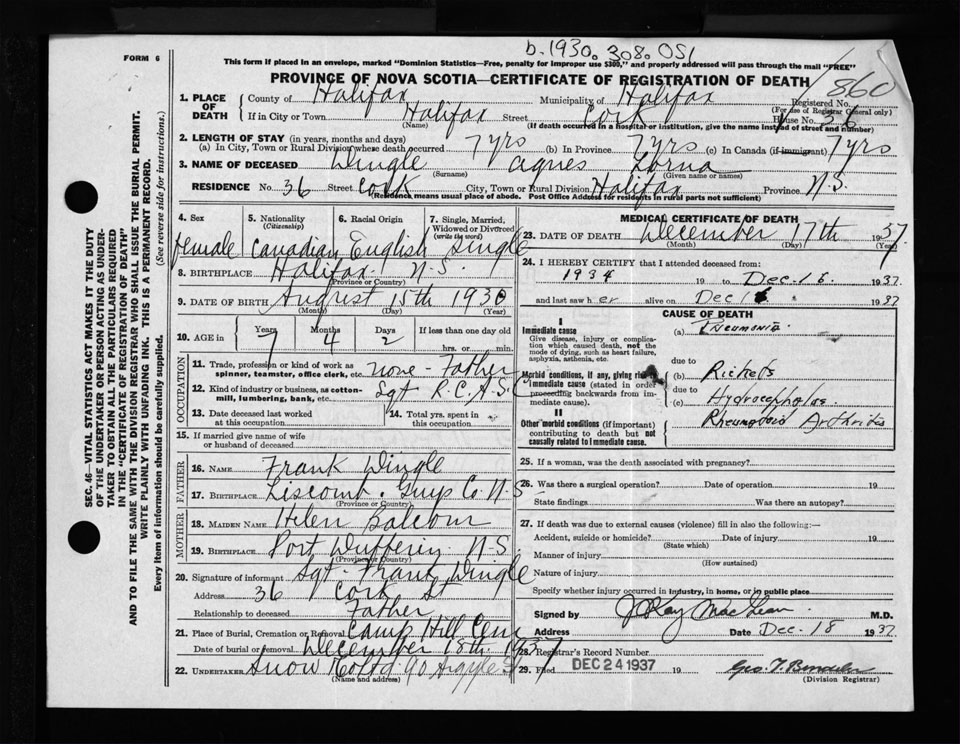 b. 1930. 308. 051
FORM 6
This form if placed in an envelope, marked "Dominion Statistics—Free, penalty for improper use $300," and properly addressed will pass through the mail "FREE"
PROVINCE OF NOVA SCOTIA—CERTIFICATE OF REGISTRATION OF DEATH
860
1. PLACE OF DEATH County of Halifax Municipality of Halifax Registered No.
(For use of Registrar General only)
If in City or Town Halifax Street Cork House No. 36
(Name) (If death occurred in a hospital or institution, give the name instead of street and number)
2. LENGTH OF STAY (in years, months and days)
(a) In City, Town or Rural Division where death occurred 7 yrs (b) In Province 7 yrs (c) In Canada (if immigrant) 7 yrs
3. NAME OF DECEASED Dingle Agnes Lorna
(Surname) (Given name or names)
RESIDENCE No. 36 Street Cork City, Town or Rural Division Halifax Province N.S.
(Residence means usual place of abode. Post Office Address for residents in rural parts not sufficient)
4. Sex 5. Nationality (Citizenship) 6. Racial Origin 7. Single, Married, Widowed or Divorced (write the word)
female Canadian English Single
8. BIRTHPLACE Halifax N.S.
(Province or Country)
9. DATE OF BIRTH August 15th 1930
(Month) (Day) (Year)
10. AGE in Years Months Days If less than one day old
7 4 2 hrs. or min.
OCCUPATION
11. Trade, profession or kind of work as spinner, teamster, office clerk, etc. none - Father
12. Kind of industry or business, as cotton-mill, lumbering, bank, etc. Sgt R.C.A.S.C
13. Date deceased last worked at this occupation 14. Total yrs. spent in this occupation
15. If married give name of wife or husband of deceased
FATHER
16. NAME Frank Dingle
17. BIRTHPLACE Liscomb. Guys Co. N.S.
(Province or Country)
MOTHER
18. MAIDEN NAME Helen Balcom
19. BIRTHPLACE Port Dufferin N.S.
(Province or Country)
20. Signature of informant Sgt. Frank Dingle
Address 36 Cork St
Relationship to deceased Father
21. Place of Burial, Cremation or Removal Camp Hill Cem
Date of burial or removal December 18th 1937
22. UNDERTAKER Snow Co Ltd 90 Argyle St
(Name and address)
MEDICAL CERTIFICATE OF DEATH
23. DATE OF DEATH December 17th 1937
(Month) (Day) (Year)
24. I HEREBY CERTIFY that I attended deceased from:
1934 19 to Dec. 16. 1937
and last saw her alive on Dec 16 1937
CAUSE OF DEATH
I
Immediate cause
Give disease, injury or complication which caused death, not the mode of dying, such as heart failure, asphyxia, asthenia, etc.
(a) Pneumonia.
due to
Morbid conditions, if any, giving rise to immediate cause (stated in order proceeding backwards from immediate cause).
(b) Rickets
due to
(c) Hydrocephalus
II
Other morbid conditions (if important) contributing to death but not causally related to immediate cause.
Rheumatoid Arthritis
25. If a woman, was the death associated with pregnancy?
26. Was there a surgical operation? Date of operation 19
State findings Was there an autopsy?
27. If death was due to external causes (violence) fill in also the following:—
Accident, suicide or homicide? Date of injury 19
(State which)
Manner of injury
(How sustained)
Nature of injury
Specify whether injury occurred in industry, in home, or in public place
Signed by J Ray MacLean M.D.
Address Date Dec. 18 1937
28. Registrar's Record Number
29. Filed DEC 24 1937 19
(Division Registrar)
SEC. 46—VITAL STATISTICS ACT MAKES IT THE DUTY
OF THE UNDERTAKER OR PERSON ACTING AS UNDER-
TAKER TO OBTAIN ALL THE PARTICULARS REQUIRED
IN THE "CERTIFICATE OF REGISTRATION OF DEATH"
AND TO FILE THE SAME WITH THE DIVISION REGISTRAR WHO SHALL ISSUE THE BURIAL PERMIT.
WRITE PLAINLY WITH UNFADING INK. THIS IS A PERMANENT RECORD.
Every item of information should be carefully supplied. (See reverse side for instructions.)